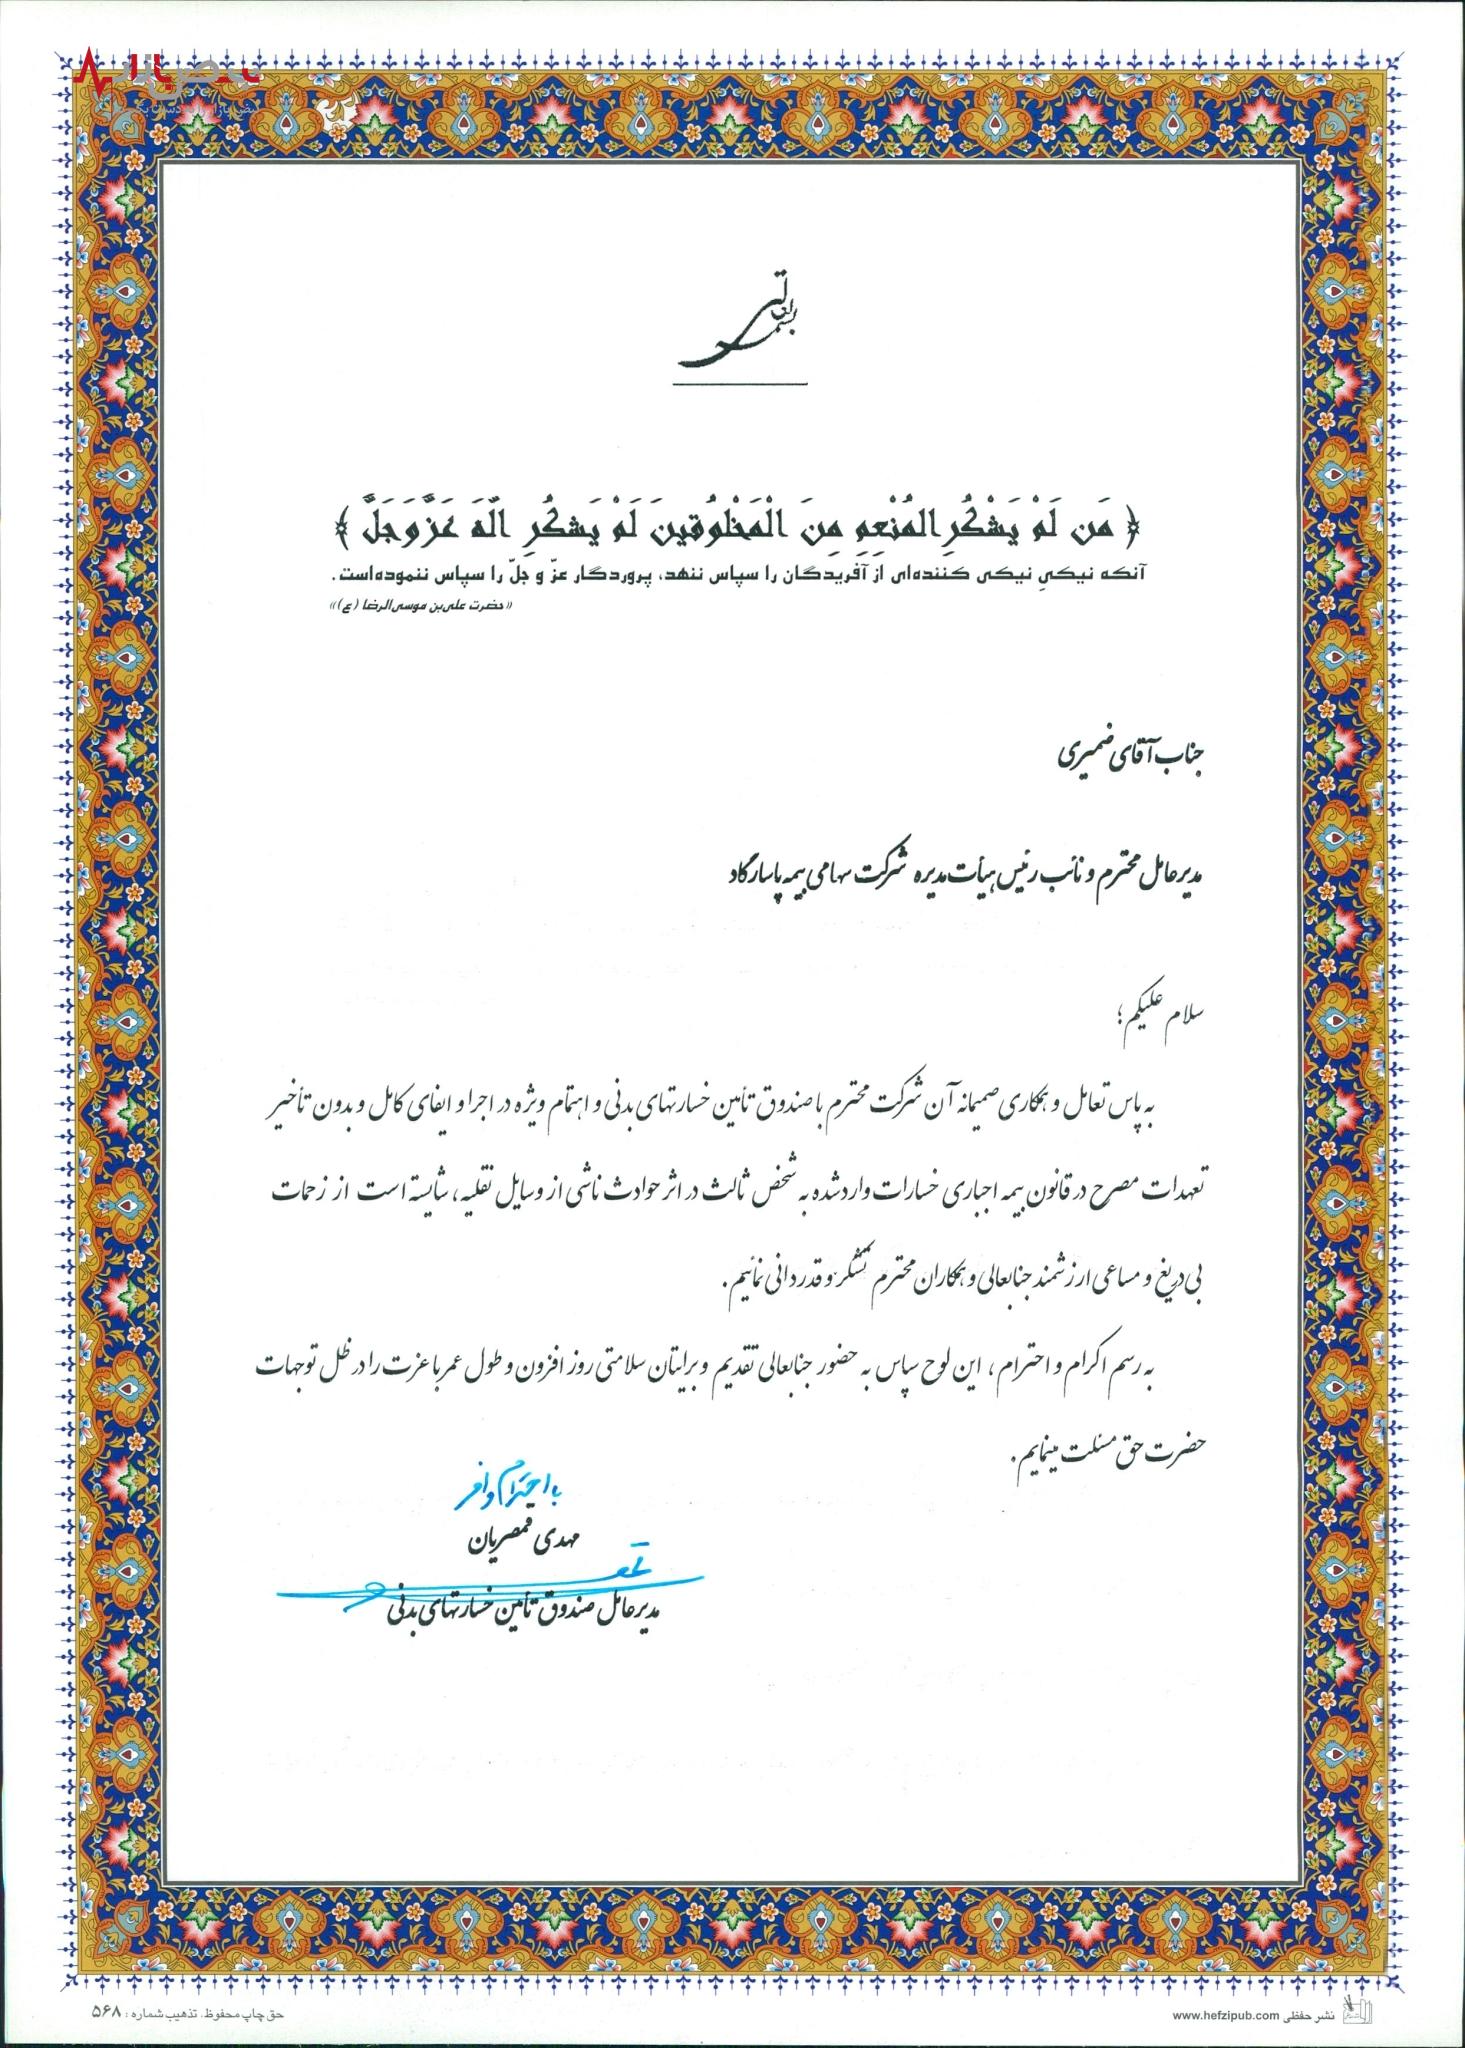 نبض بازار
بسمه تعالی
﴿ مَن لَمْ یَشْکُرِ المُنْعِمِ مِنَ الْمَخْلُوقینَ لَمْ یَشکُرِ الّهَ عَزَّوَجَلَّ ﴾
آنکه نیکیِ نیکی کننده‌ای از آفریدگان را سپاس ننهد، پروردگار عزّ و جلّ را سپاس ننموده‌است.
«حضرت علی‌بن موسی‌الرضا (ع)»
جناب آقای ضمیری
مدیرعامل محترم و نائب رئیس هیأت مدیره شرکت سهامی بیمه پاسارگاد
سلام علیکم؛
به پاس تعامل و همکاری صمیمانه آن شرکت محترم با صندوق تأمین خسارتهای بدنی و اهتمام ویژه در اجرا و ایفای کامل و بدون تأخیر
تعهدات مصرح در قانون بیمه اجباری خسارات وارد شده به شخص ثالث در اثر حوادث ناشی از وسایل نقلیه، شایسته است از زحمات
بی دریغ و مساعی ارزشمند جنابعالی و همکاران محترم تشکر و قدردانی نمائیم.
به رسم اکرام و احترام، این لوح سپاس به حضور جنابعالی تقدیم و برایتان سلامتی روز افزون و طول عمر با عزت را در ظل توجهات
حضرت حق مسئلت مینمایم.
با احترام وافر
مهدی قمصریان
مدیرعامل صندوق تأمین خسارتهای بدنی
نشر حفظی www.hefzipub.com
حق چاپ محفوظ، تذهیب شماره : ۵۶۸